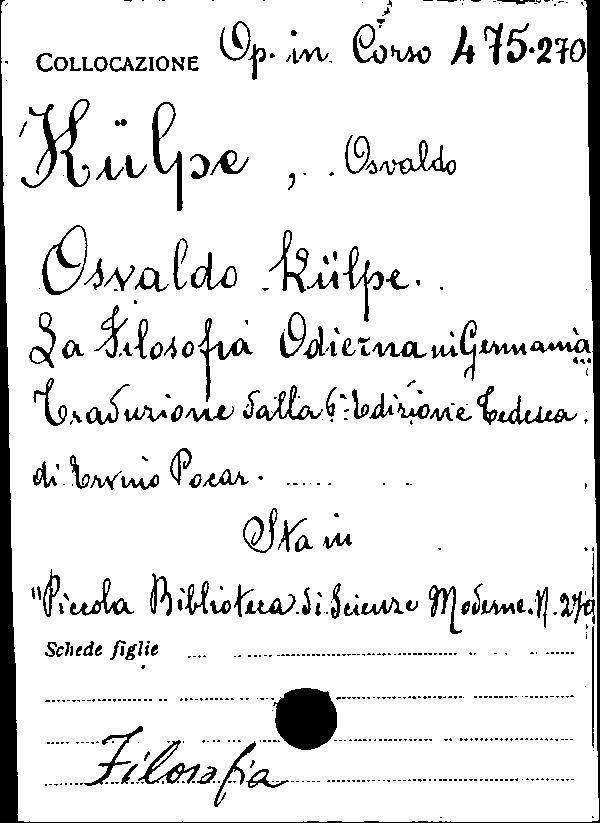 COLLOCAZIONE Op. in Corso 475.270
Külpe, Osvaldo
Osvaldo Külpe.
La Filosofia Odierna in Germania
Traduzione dalla 6ª Edizione Tedesca
di Ervino Pocar.
Sta in
"Piccola Biblioteca di Scienze Moderne. N. 270
Schede figlie
Filosofia